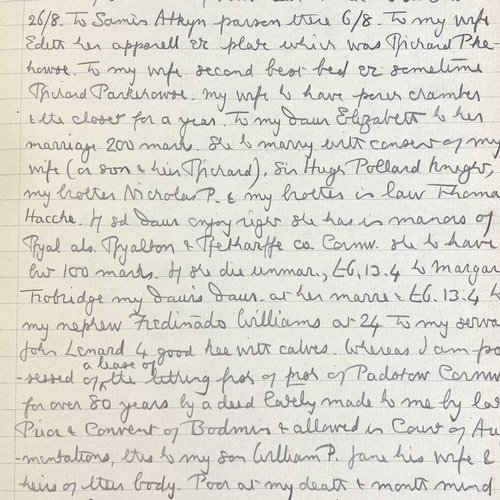 26/8. To Samis Atkyn parson there 6/8. To my wife
Edeth her apparell & plate which was Richard
. To my wife second best bed & sometime
Richard . my wife to have chamber
& the closet for a year. To my daur Elizabeth to her
marriage 200 marks. She to marry with consent of my
wife (or son & heir Richard), Sir Hugh Pollard Knight,
my brother Nicholas P. & my brother in law Thoma
Hacche. If sd daur enjoy right she has in manors of
Ryal als. Ryalton & co. Cornw. she to have
but 100 marks. If she die unmar., £6,13.4 to Margar
Trobridge my dau's daur. at her marre & £6.13.4 to
my nephew Ferdinado Williams at 24 To my serva
John Lenard 4 good kee with calves. Whereas I am po
a lease of
-sessed of the tithing of Padstow Cornw
for over 80 years by a deed lately made to me by las
Prior & Convent of Bodmin & allowed in Court of Au
-mentations, this to my son William P. Jane his wife &
heirs of their body. Poor at my death & month mind